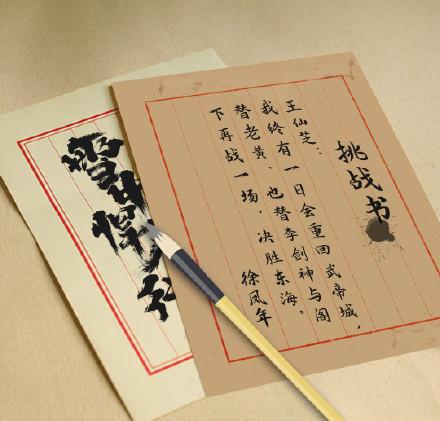 挑战书
王仙芝：
我终有一日会重回武帝城，
替老黄、也替李剑神与阁
下再战一场，决胜东海。
徐凤年
雪中悍